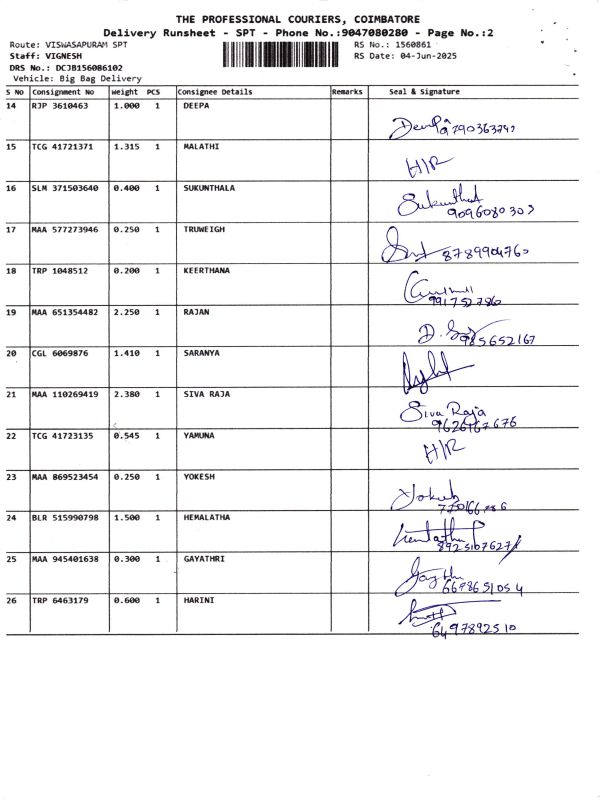 THE PROFESSIONAL COURIERS, COIMBATORE
Delivery Runsheet - SPT - Phone No.:9047080280 - Page No.:2
Route: VISWASAPURAM SPT RS No.: 1560861
Staff: VIGNESH RS Date: 04-Jun-2025
DRS No.: DCJB156086102
Vehicle: Big Bag Delivery
S No Consignment No Weight PCS Consignee Details Remarks Seal & Signature
14 RJP 3610463 1.000 1 DEEPA
Deepa 9790363747
15 TCG 41721371 1.315 1 MALATHI
H/R
16 SLM 371503640 0.400 1 SUKUNTHALA
Sukunthal
9096080303
17 MAA 577273946 0.250 1 TRUWEIGH
8789904760
18 TRP 1048512 0.200 1 KEERTHANA
991752786
19 MAA 651354482 2.250 1 RAJAN
985652167
20 CGL 6069876 1.410 1 SARANYA
21 MAA 110269419 2.380 1 SIVA RAJA
Siva Raja
9626167676
22 TCG 41723135 0.545 1 YAMUNA
H/R
23 MAA 869523454 0.250 1 YOKESH
24 BLR 515990798 1.500 1 HEMALATHA
8925107627
25 MAA 945401638 0.300 1 GAYATHRI
6698651054
26 TRP 6463179 0.600 1 HARINI
6497892510